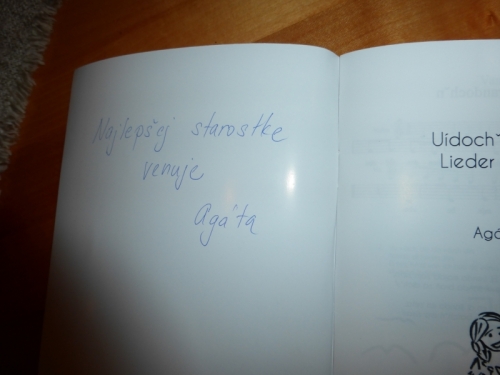 Najlepšej starostke
venuje
Agáta
Uídoch
Lieder
Agá